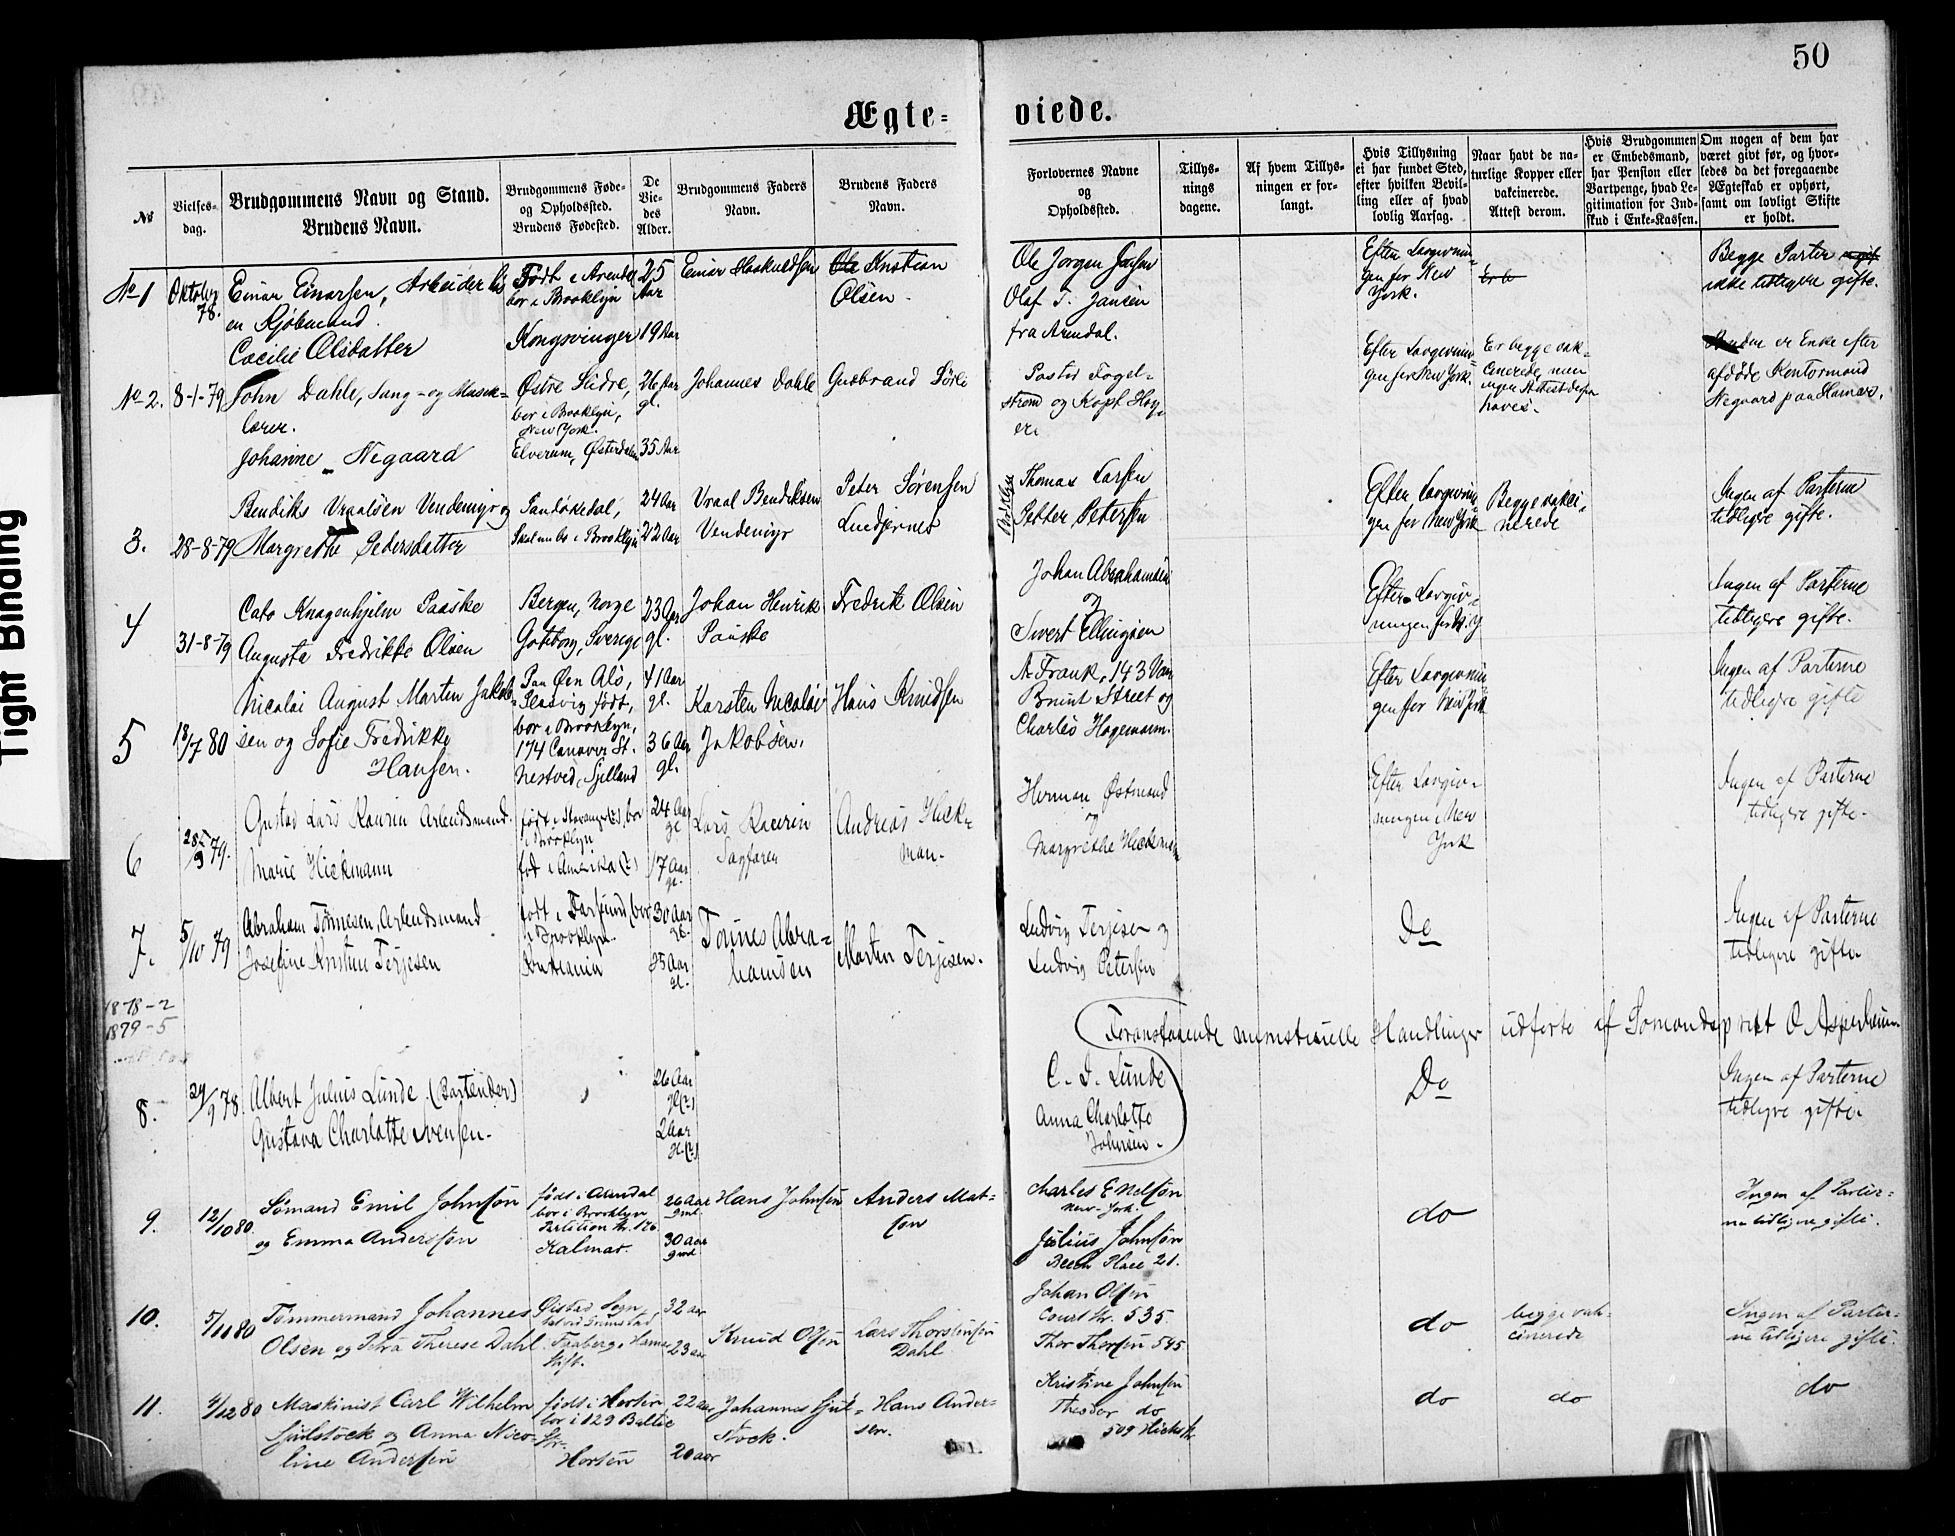 50
Ægte= viede.
№
Vielses=
dag.
Brudgommens Navn og Stand.
Brudens Navn.
Brudgommens Føde=
og Opholdssted.
Brudens Fødested.
De
Vie=
des
Alder.
Brudgommens Faders
Navn.
Brudens Faders
Navn.
Forlovernes Navne
og
Opholdssted.
Tillys=
nings
dagene.
Af hvem Tillys=
ningen er for=
langt.
Hvis Tillysning
ei har fundet Sted,
efter hvilken Bevil=
ling eller af hvad
lovlig Aarsag.
Naar havt de na=
turlige Kopper eller
vakcinerede.
Attest derom.
Hvis Brudgommen
er Embedsmand,
har Pension eller
Vartpenge, hvad Le=
gitimation for Ind=
skud i Enke=Kassen.
Om nogen af dem har
været givt før, og hvor=
ledes da det foregaaende
Ægteskab er ophørt,
samt om lovligt Skifte
er holdt.
No 1
Oktober
78.
Einar Einarsen, Arbeider hos
en Kjøbmand.
Cæcilie Olsdatter
Født i Arendal
bor i Brooklyn
Kongsvinger
25
Aar
19 Aar
Einar
Ole Kristian
Olsen.
Ole Jørgen Jansen
Olaf J. Jansen
fra Arendal.
Efter Lovgivnin-
gen for New
York.
Begge Parter
ikke tidligere gifte.
No 2.
8-1-79
John Dahle, Sang- og Musik-
lærer.
Johanne Negaard
Østre Slidre,
bor i Brooklyn,
New York.
Elverum, Østerdalen
26 Aar
gl.
35 Aar
Johannes Dahle
Gudbrand
Pastor Fogel-
strøm og Kapt. Høy-
er
Efter Lovgivnin-
gen for New York.
Er begge vak-
cinerede, men
ingen Attest derfor
haves.
er Enke efter
afdøde Kontormand
Negaard paa Hamar.
3.
28-8-79
Bendiks Vraalsen Vendemyr og
Margrethe Pedersdatter
Sandøkedal,
i Brooklyn
24 Aar
22 Aar
Vraal Bendiksen
Vendemyr
Peter Sørensen
Thomas Larsen
Petter Petersen
Efter Lovgivnin-
gen for New York
Begge vakci-
nerede
Ingen af Parterne
tidligre gifte.
4
31-8-79
Cato Knagenhjelm Paaske
Augusta Fredrikke Olsen
Bergen, Norge
Gøteborg, Sverige
23 Aar
gl.
Johan Henrik
Paaske
Fredrik Olsen
Johan Abrahamsen
og
Sivert Ellingsen
Efter Lovgiv-
ningen for N.Y
Ingen af Parterne
tidligere gifte.
5
18/7 80
Nicolai August Marten Jakob-
sen og Sofie Fredrikke
Hansen.
Paa Øen Als,
Slesvig født,
bor i Brooklyn,
174 Conover St.
Nestved, Sjelland
41 Aar
gl.
36 Aar
gl.
Karsten Nicolai
Jakobsen.
Hans Knudsen
A. Frank, 143 Van
Brunt Street og
Charles Hagemann.
Efter Lovgivnin-
gen for New York
Ingen af Parterne
tidligre gifte
6
28/9 79.
Gustav Lars Arbeidsmand.
Marie Hickmann
født i Stavanger(?), bor
i Brooklyn
fød i Amerika (?)
24 Aar
gl
17 Aar
gl.
Lars
Sagfører
Andreas Hick-
man.
Herman Østmand
og
Margrethe Hickman
Efter Lovgiv-
ningen i New
York
Ingen af Parterne
tidligre gifte.
7.
5/10 79
Abraham Tønnesen, Arbeidsmand
Josefine Kristine Terjesen
født i Farsund, bor
i Brooklyn.
30 Aar
gl.
25 Aar
gl.
Tønnes Abra=
hamsen
Martin Terjesen.
Ludvig Terjesen og
Ludvig Petersen
Do
Ingen af Parterne
tidligere gifte
1878-2
1879-5
Foranstaaende ministerielle Handlinger udførte af Sømandsprest O. Asperheim
8.
29/9 78.
Albert Julius Lunde (Bartender)
Gustava Charlotte Svensen.
26 Aar
gl(?)
2 Aar
gl.(?)
C. J. Lunde
Anna Charlotte
Johnsen.
Do
Ingen af Parterne
tidligre gifte.
9.
12/10 80
Sømand Emil Johnson
og Emma Andersson
født i Arendal
bor i Brooklyn
Partition str. 126.
Kalmar.
26 aar
gml.
30 aar
gml
Hans Johnsen
Anders Mat-
son
Charles E Nelson
New-York.
Julius Johnson
Beech Place 21.
do
Ingen af Parter-
ne tidligere gifte.
10.
5/11 80
Tømmermand Johannes
Olsen og Petra Therese Dahl
Øiestad Sogn
ved Grimstad
Faaberg i Hamar
Stift.
32 aar
23 aar
Knud Olsen
Lars Thorstensen
Dahl
Johan Olsen
Court Str. 535.
Thor Thorsen 545
do
begge vak-
cinerede
Ingen af Parter-
ne tidligere gifte.
11.
4/12 80
Maskinist Carl Wilhelm
Gjulstock og Anna Nico-
line Andersen
født i Horten
bor i 129 Baltic
Str.
Horten
22 aar
20 aar
Johannes Gjul-
stock.
Hans Ander-
sen.
Kristine Johnsen
Theodor do
509 Hicks str
do
do
do
Tight Binding